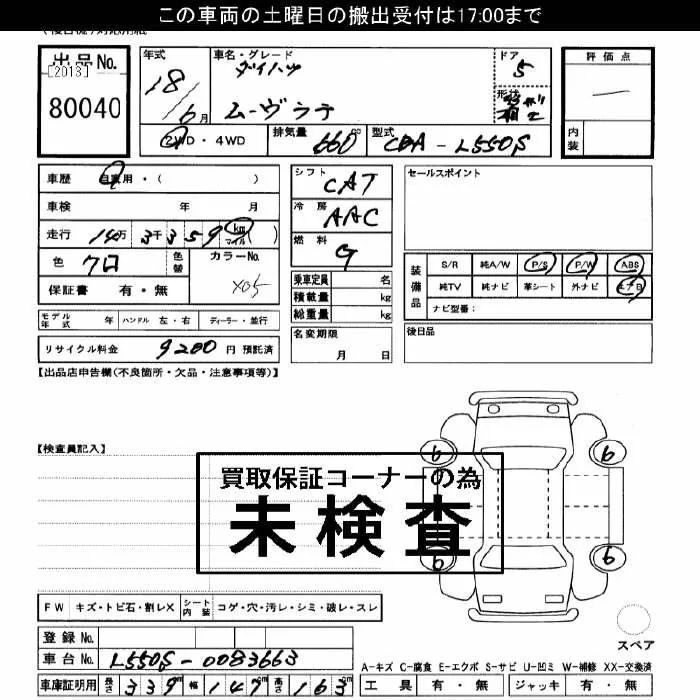 この車両の土曜日の搬出受付は17:00まで
出品No. [2013] 80040
年式 18/6月
車名・グレード ダイハツ ムーヴラテ
ドア 5
形状
2WD・4WD 排気量 660cc 型式 CBA-L550S
評価点 ―
内装
車歴 自家用・( )
車検 年 月
走行 14万3千359km マイル ( )
色 クロ 色替 カラーNo. X05
保証書 有・無
シフト CAT
冷房 AAC
燃料 G
乗車定員 名
積載量 kg
総重量 kg
セールスポイント
装備品 S/R 純A/W P/S P/W ABS
純TV 純ナビ 革シート 外ナビ エアB
ナビ型番:
モデル年式 年 ハンドル 左・右 ディーラー・並行
リサイクル料金 9200円 預託済
名変期限 月 日
後日品
【出品店申告欄(不良箇所・欠品・注意事項等)】
【検査員記入】
6 6
買取保証コーナーの為
未検査
6 6
FW キズ・トビ石・割レX シート内装 コゲ・穴・汚レ・シミ・破レ・スレ
登録No.
スペア
車台No. L550S-0083663
A-キズ C-腐食 E-エクボ S-サビ U-凹ミ W-補修 XX-交換済
車庫証明用 長さ 339cm 幅 147cm 高さ 163cm
工具 有・無 ジャッキ 有・無